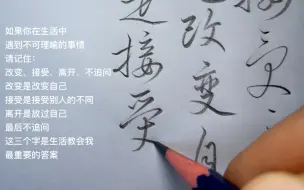 如果你在生活中
遇到不可理喻的事情
请记住：
改变、接受、离开、不追问
改变是改变自己
接受是接受别人的不同
离开是放过自己
最后不追问
这三个字是生活教会我
最重要的答案
接受
改变自
接受